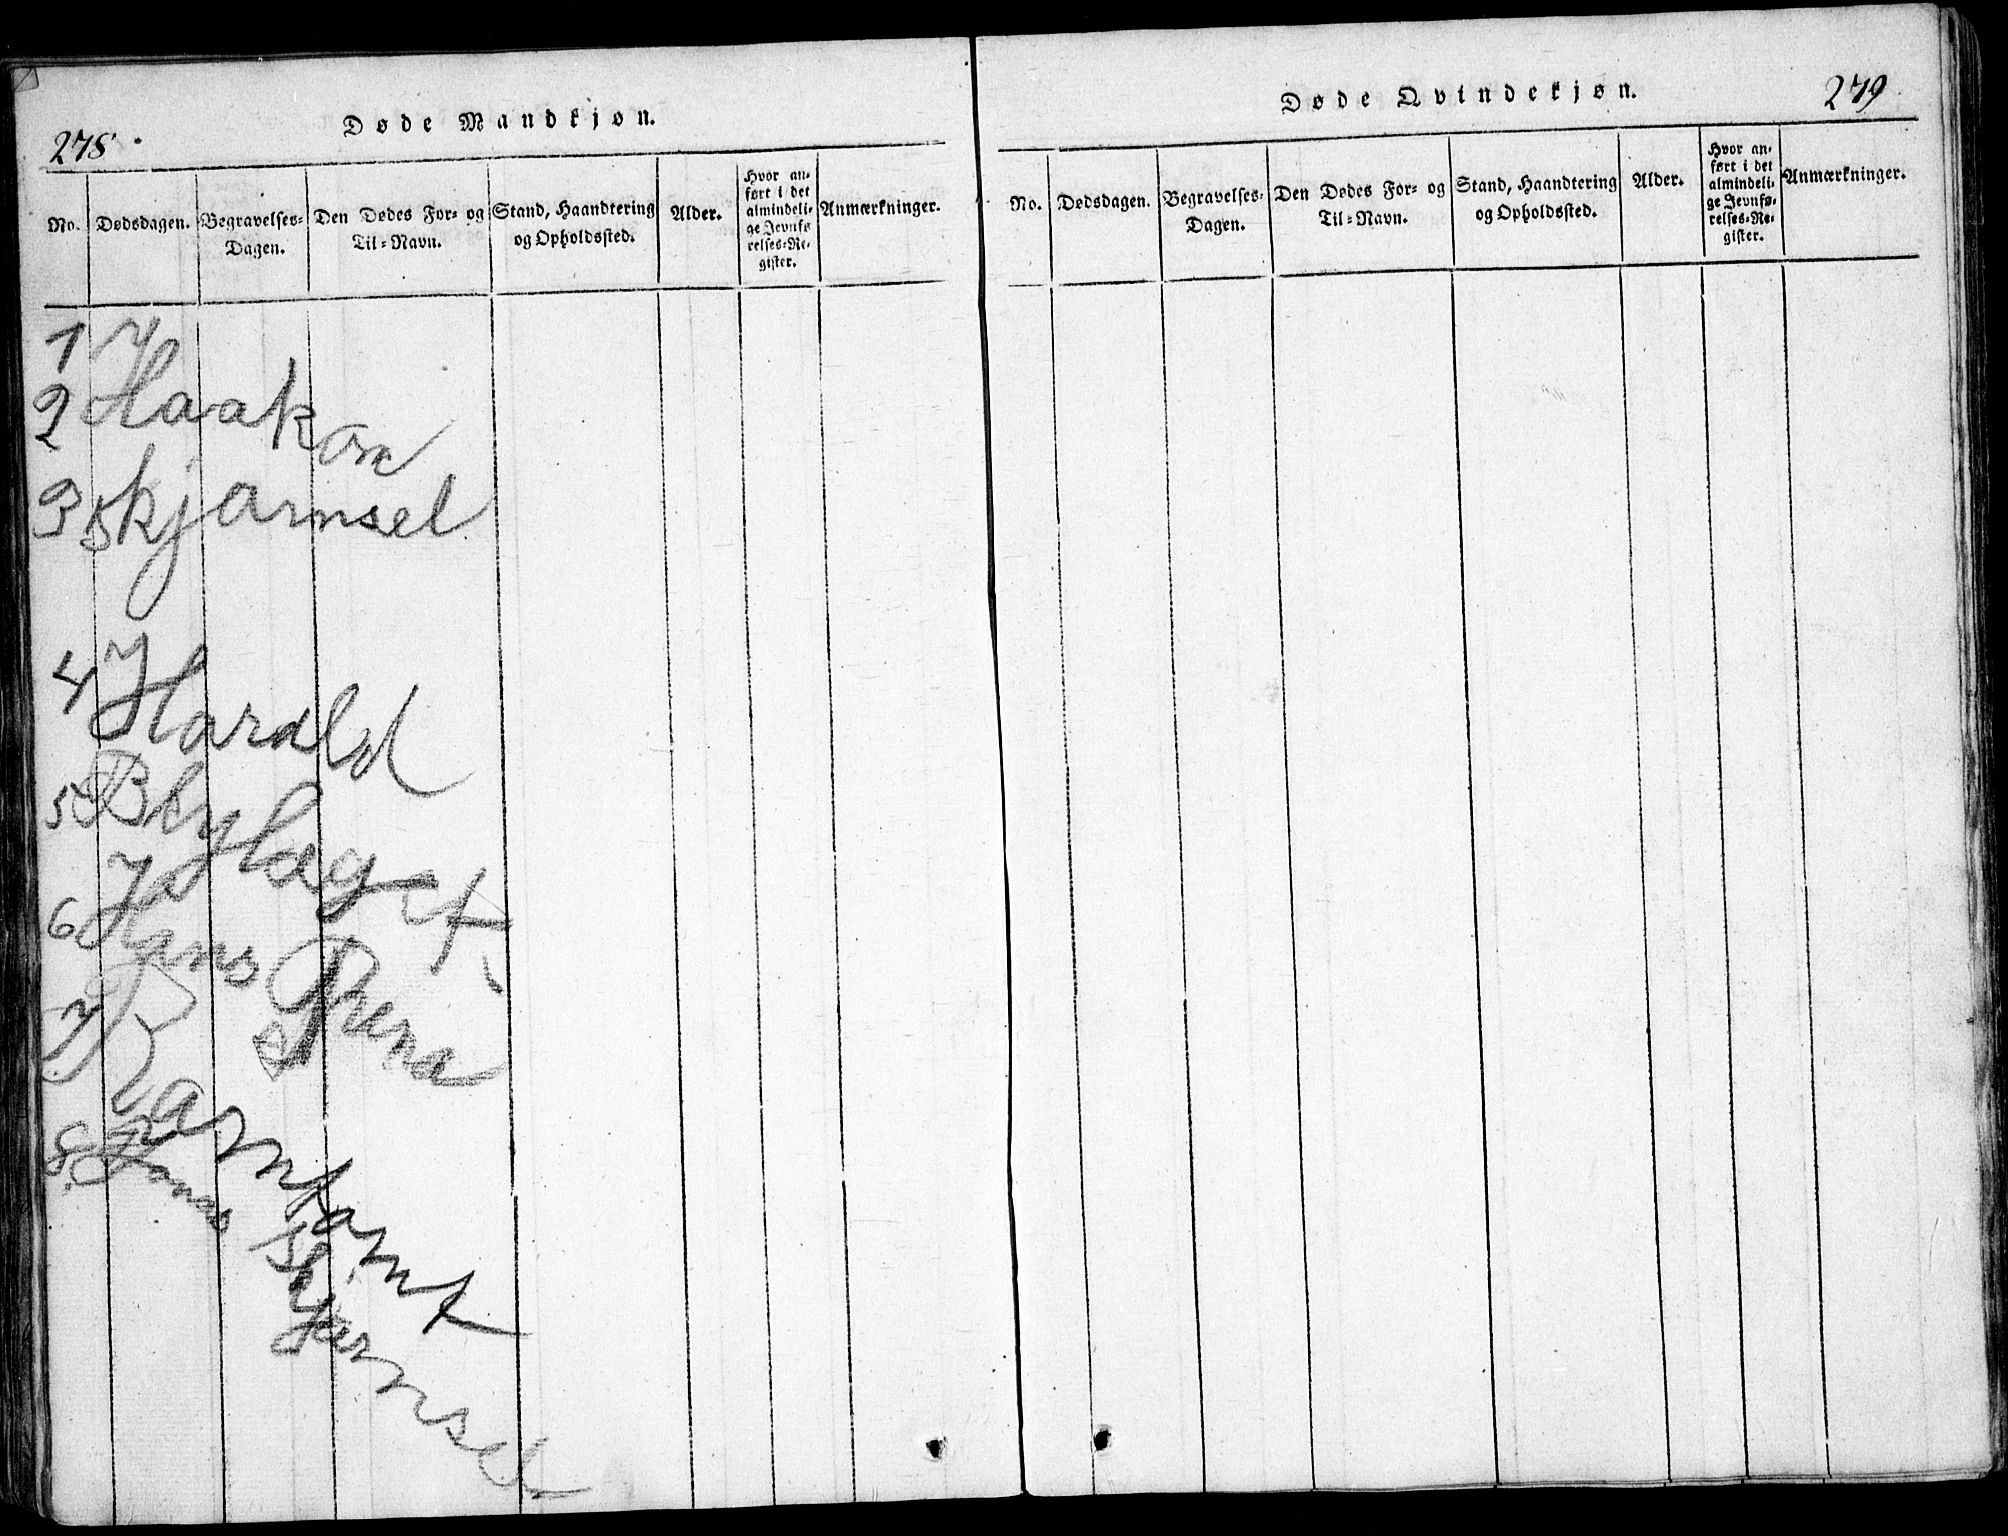 278
Døde Mandkjøn.
No.
Dødsdagen.
Begravelses-
Dagen.
Den Dødes For- og
Til-Navn.
Stand, Haandtering
og Opholdssted.
Alder.
Hvor an-
ført i det
almindeli-
ge Jevnfø-
relses-Re-
gister.
Anmærkninger.
1
2 Haakon
3 Skjørnsel
4 Harald
5
6 Hans
7
8. Skjørnsel
Døde Qvindekjøn.
279
No.
Dødsdagen.
Begravelses-
Dagen.
Den Dødes For- og
Til-Navn.
Stand, Haandtering
og Opholdssted.
Alder.
Hvor an-
ført i det
almindeli-
ge Jevnfø-
relses-Re-
gister.
Anmærkninger.